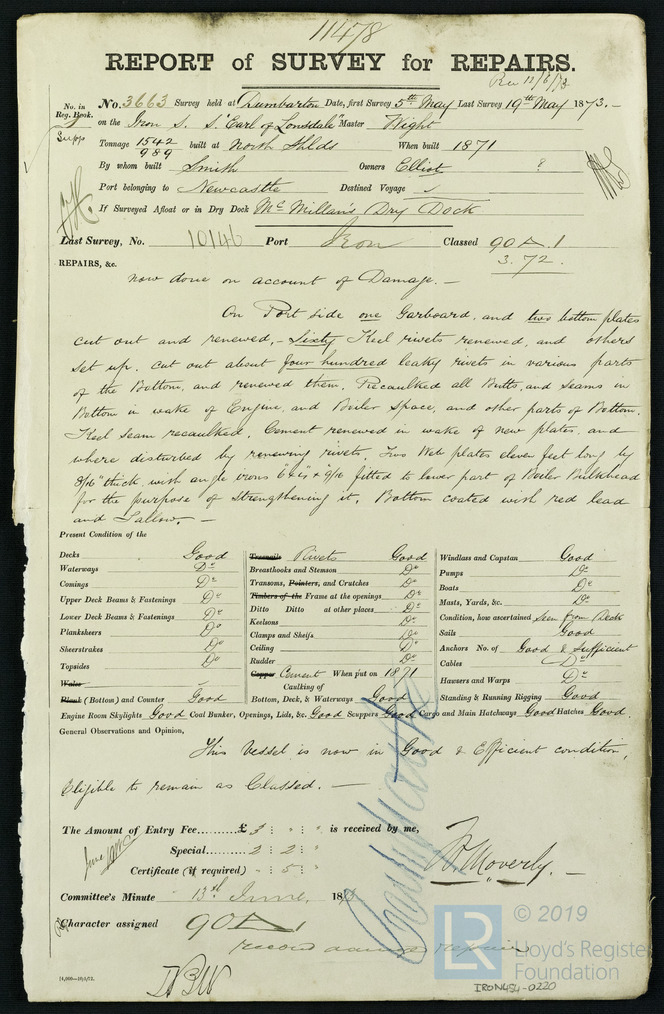 11478
REPORT of SURVEY for REPAIRS.
Rec 12/6/73
No. in Reg. Book.
Supp
No. 3663 Survey held at Dumbarton Date, first Survey 5th May Last Survey 19th May 1873.-
on the Iron S. S. "Earl of Lonsdale" Master Wight
Tonnage 1542 989 built at North Shlds When built 1871
By whom built Smith Owners Elliot ?
Port belonging to Newcastle Destined Voyage
If Surveyed Afloat or in Dry Dock McMillan's Dry Dock
Last Survey, No. 10146 Port Iron Classed 90 A.1
3.72.
REPAIRS, &c.
now done on account of Damage. -
On Port side one Garboard, and two bottom plates
cut out and renewed,- Sixty Keel rivets renewed, and others
set up. cut out about four hundred leaky rivets in various parts
of the Bottom, and renewed them. Recaulked all Butts, and Seams in
Bottom in wake of Engine, and Boiler Space, and other parts of Bottom.
Keel seam recaulked, Cement renewed in wake of new plates, and
where disturbed by renewing rivets. Two Web plates eleven feet long by
thick, with angle irons fitted to lower part of Boiler Bulkhead
for the purpose of strengthening it. Bottom coated with red lead
and Tallow. -
Present Condition of the
Decks Good
Waterways Do
Comings Do
Upper Deck Beams & Fastenings Do
Lower Deck Beams & Fastenings Do
Planksheers Do
Sheerstrakes Do
Topsides Do
Wales
Plank (Bottom) and Counter Good
Treenails Rivets Good
Breasthooks and Stemson Do
Transoms, Pointers, and Crutches Do
Timbers of the Frame at the openings Do
Ditto Ditto at other places Do
Keelsons Do
Clamps and Shelfs Do
Ceiling Do
Rudder Do
Copper Cement When put on 1871
Caulking of
Bottom, Deck, & Waterways Good
Windlass and Capstan Good
Pumps Do
Boats Do
Masts, Yards, &c. Do
Condition, how ascertained Seen from Deck
Sails Good
Anchors No. of Good & Sufficient
Cables Do
Hawsers and Warps Do
Standing & Running Rigging Good
Engine Room Skylights Good Coal Bunker, Openings, Lids, &c. Good Scuppers Good Cargo and Main Hatchways Good Hatches Good.
General Observations and Opinion,
This Vessel is now in Good & Efficient condition,
Eligible to remain as Classed. -
The Amount of Entry Fee £ 3 : " : " is received by me,
Special 2 : 2 : "
Certificate (if required) - : 5 : "
B. Moverly. -
Committee's Minute 13th June, 187
Character assigned 90 A 1
record damage repairs
© 2019
LR
Lloyd's Register
Foundation
IRON454-0220